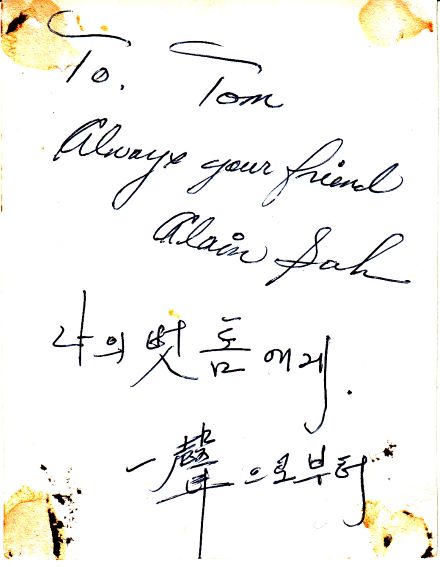 To. Tom
Always your friend
Alain Sah
나의 벗 톰에게.
一聲으로부터